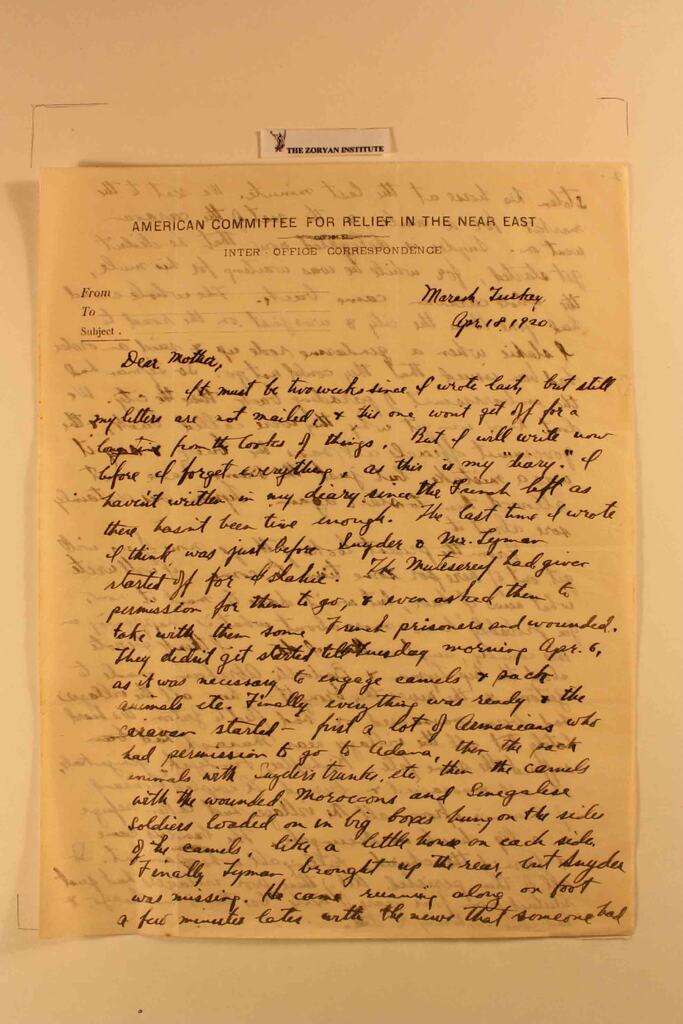 THE ZORYAN INSTITUTE
AMERICAN COMMITTEE FOR RELIEF IN THE NEAR EAST
INTER-OFFICE CORRESPONDENCE
From
To
Subject.
Marash, Turkey,
Apr. 18, 1920.
Dear Mother,
It must be two weeks since I wrote last, but still
my letters are not mailed, & this one won't get off for a
long time from the looks of things. But I will write now
before I forget everything, as this is my "diary." I
haven't written in my diary since the French left as
there hasn't been time enough. The last time I wrote
I think was just before Snyder & Mr. Lyman
started off for Islahie. The Mutesereif had given
permission for them to go, & even asked them to
take with them some French prisoners and wounded.
They didn't get started till Tuesday morning Apr. 6,
as it was necessary to engage camels & pack
animals etc. Finally everything was ready & the
caravan started – first a lot of Armenians who
had permission to go to Adana, then the pack
animals with Snyder's trunks, etc, then the camels
with the wounded, Moroccons and Senegalise
soldiers loaded on in big boxes hung on the sides
of the camels, like a little house on each side.
Finally Lyman brought up the rear, but Snyder
was missing. He came running along on foot
a few minutes later with the news that someone had